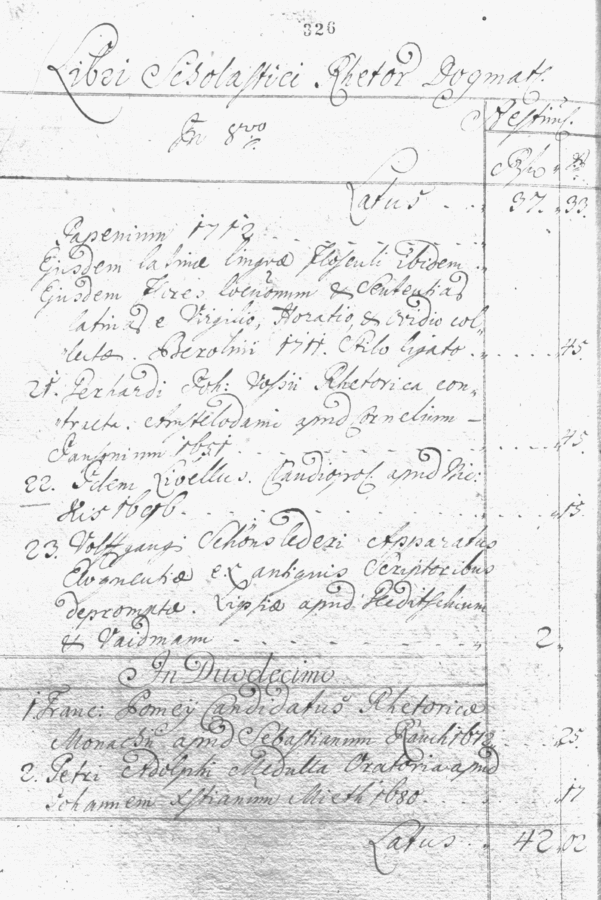 326
Libri Scholastici Rhetor Dogmat.
In 8vo
Latus 37. 33.
1712
Ejusdem latinæ linguæ flosculi ibidem
Ejusdem Flores locutionum & Sententias
latinas e Virgilio, Horatio, & Ovidio col-
lectæ. Berolini 1711. Stilo ligato 45.
21. Gerhardi Joh: Vossii Rhetorica con-
tracta. Amstelodami apud Cornelium
Jansonium 1651 45.
22. Idem Livellus. apud
1696. 15
23. Wolffgangi Schönslederi Apparatus
Eloquentiæ ex antiquis Scriptoribus
depromptæ. Lipsiæ apud
& Vaidmann 2.
In Duodecimo
1. Franc: Pomey Candidatus Rhetoricæ
Monachii apud Sebastianum Rauch 1672 25.
2. Petri Adolphi Medulla Oratoria apud
Johannem Xstianum Mieth 1680. 17
Latus 42. 02